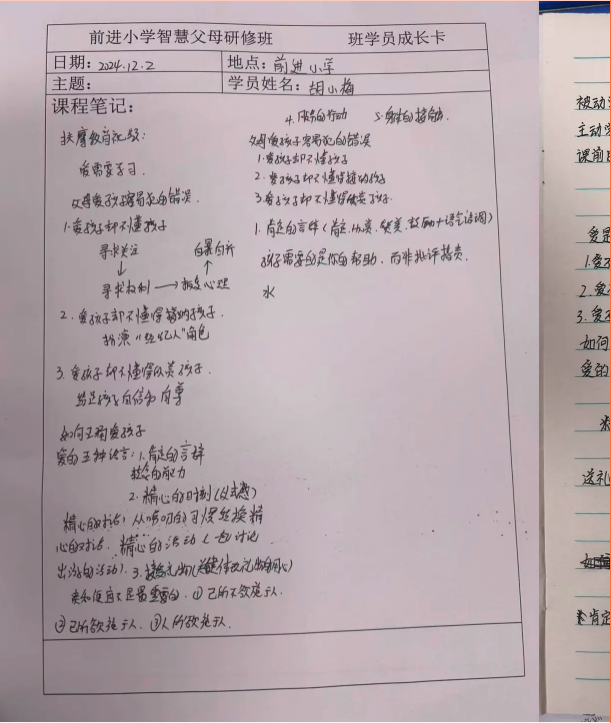 前进小学智慧父母研修班 班学员成长卡
日期：2024.12.2 地点：前进小学
主题： 学员姓名：胡小梅
课程笔记：
扶鹰教育
爱需要学习．
父母爱孩子容易犯的错误．
1.爱孩子却不懂孩子
寻求关注 自暴自弃
↓ ↑
寻求权利→报复心理
2．爱孩子却不懂得接纳孩子．
扮演“经纪人”角色
3．爱孩子却不懂得欣赏孩子．
给足孩子自信和自尊
如何正确爱孩子
爱的五种语言：1.肯定的言辞
的能力
2．精心的时刻（仪式感）
精心的对话：从唠叨的习惯转换精
心的对话．精心的活动（一起讨论
出游的活动）．3．接受礼物
贵和便宜不是最重要的．①己所不欲施于人．
②己所欲施于人．③人所欲施于人．
4．服务的行动 5．身体的接触．
父母爱孩子容易犯的错误
1.爱孩子却不懂孩子
2．爱孩子却不懂得接纳孩子
3．爱孩子却不懂得欣赏孩子．
1．肯定的言辞（肯定、欣赏、赞美、鼓励+语气语调）
孩子需要的是你的帮助，而非批评指责．
水
被动
主动学
课前
爱是
1.爱
2.爱
3.爱
如何
爱的
送礼
肯定